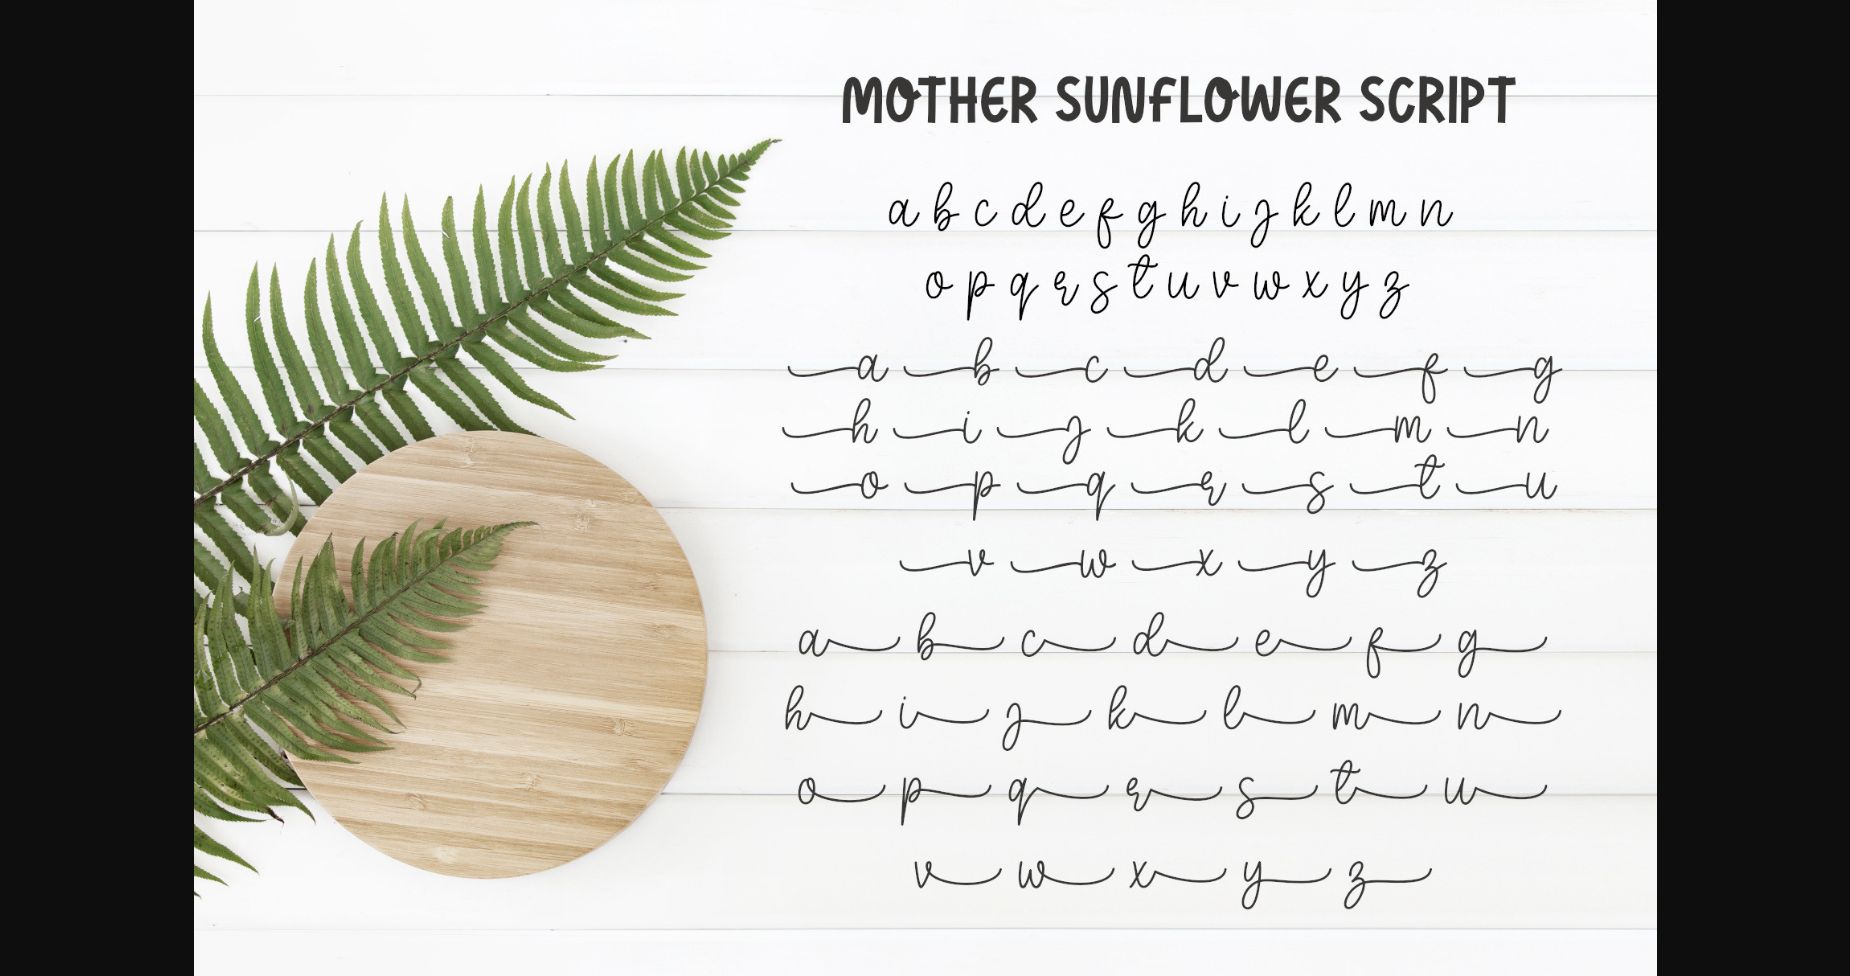 MOTHER SUNFLOWER SCRIPT
a b c d e f g h i j k l m n
o p q r s t u v w x y z
a b c d e f g
h i j k l m n
o p q r s t u
v w x y z
a b c d e f g
h i j k l m n
o p q r s t u
v w x y z